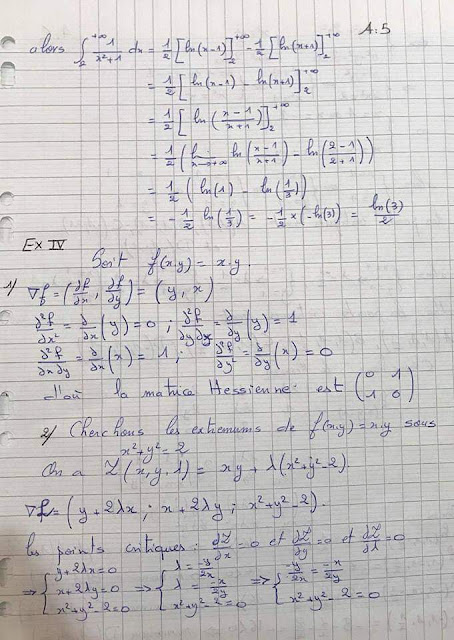 A:5
alors ∫₂^{+∞} 1/(x²+1) dx = 1/2 [ln(x-1)]₂^{+∞} - 1/2 [ln(x+1)]₂^{+∞}
= 1/2 [ln(x-1) - ln(x+1)]₂^{+∞}
= 1/2 [ln((x-1)/(x+1))]₂^{+∞}
= 1/2 (lim_{x→+∞} ln((x-1)/(x+1)) - ln((2-1)/(2+1)))
= 1/2 (ln(1) - ln(1/3))
= -1/2 ln(1/3) = -1/2 × (-ln(3)) = ln(3)/2
Ex IV
Soit f(x,y) = x.y.
1/ ∇f = (∂f/∂x, ∂f/∂y) = (y, x)
∂²f/∂x² = ∂/∂x (y) = 0 ; ∂²f/∂y∂x = ∂/∂y (y) = 1
∂²f/∂x∂y = ∂/∂x (x) = 1 ; ∂²f/∂y² = ∂/∂y (x) = 0
d'où la matrice Hessienne est (0 1 ; 1 0)
2/ Cherchons les extremums de f(x,y) = x.y sous
x²+y² = 2
On a L(x,y,λ) = xy + λ(x²+y²-2)
∇L = (y+2λx ; x+2λy ; x²+y²-2).
les points critiques : ∂L/∂x = 0 et ∂L/∂y = 0 et ∂L/∂λ = 0
⇒ { y+2λx=0 ⇒ { λ = -y/2x ⇒ { -y/2x = -x/2y
x+2λy=0 λ = -x/2y
x²+y²-2=0 x²+y²-2=0 x²+y²-2=0